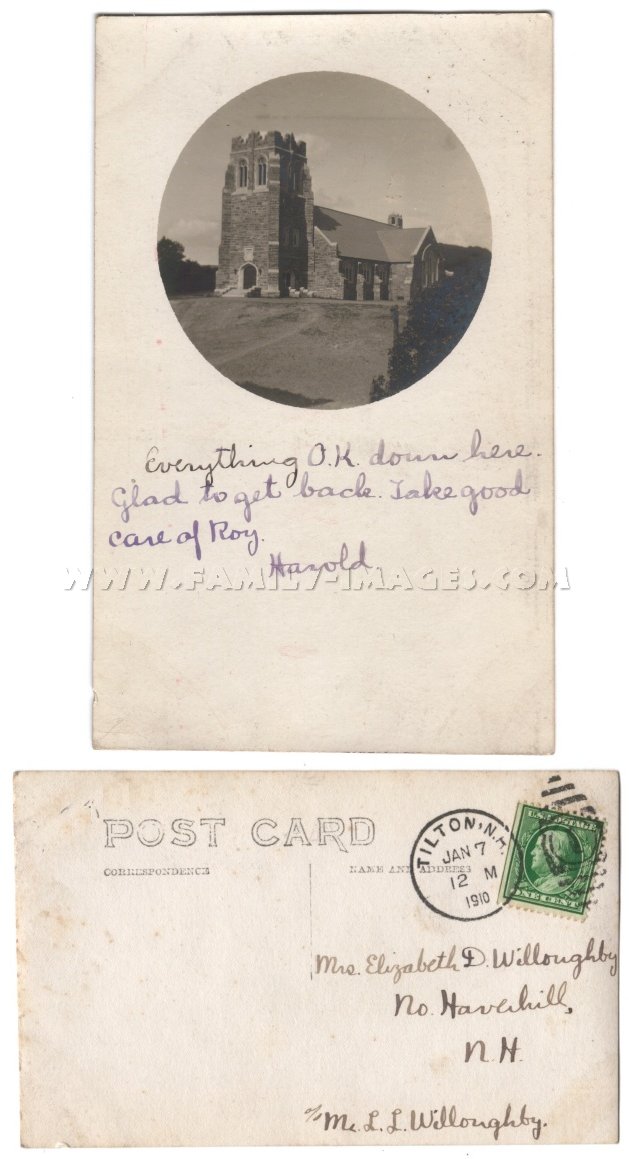 Everything O.K. down here.
Glad to get back. Take good
care of Roy.
Harold
WWW.FAMILY-IMAGES.COM
POST CARD
CORRESPONDENCE
NAME AND ADDRESS
TILTON, N.H.
JAN 7
12 M
1910
U.S. POSTAGE
ONE CENT
Mrs. Elizabeth D. Willoughby
No. Haverhill,
N.H.
c/o Mr. L. L. Willoughby.